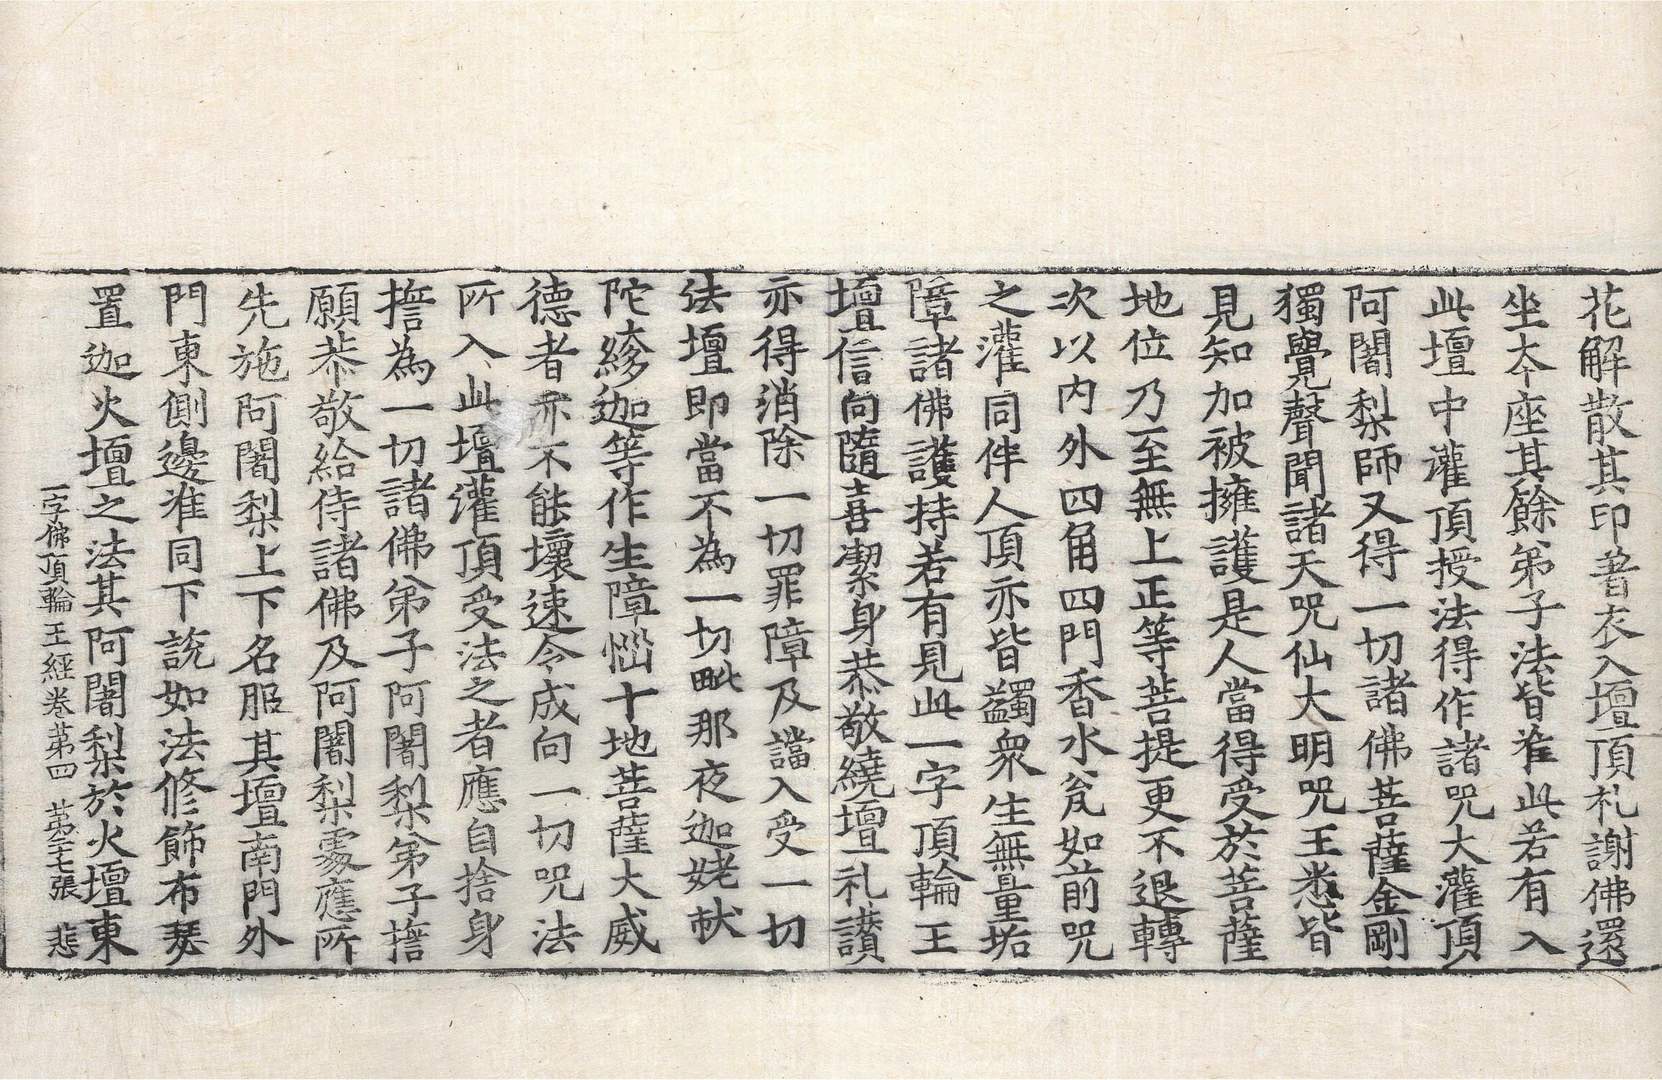 花解散其印著衣入壇頂礼謝佛還
坐夲座其餘弟子法皆准此若有入
此壇中灌頂授法得作諸呪大灌頂
阿闍梨師又得一切諸佛菩薩金剛
獨覺聲聞諸天呪仙大明呪王悉皆
見知加被擁護是人當得受於菩薩
地位乃至無上正等菩提更不退轉
次以内外四角四門香水瓮如前呪
之灌同伴人頂亦皆蠲衆生無量垢
障諸佛護持若有見此一字頂輪王
壇信向隨喜潔身恭敬繞壇礼讃
亦得消除一切罪障及讆入受一切
法壇即當不為一切毗那夜迦姥馱
陀縿迦等作生障惱十地菩薩大威
德者亦不能壞速令成向一切呪法
所入此壇灌頂受法之者應自捨身
捨為一切諸佛弟子阿闍梨弟子捨
願恭敬給侍諸佛及阿闍梨處應所
先施阿闍梨上下名服其壇南門外
門東側邊准同下說如法修飾布瑟
置迦火壇之法其阿闍梨於火壇東
一字佛頂輪王經卷第四 第七張 悲